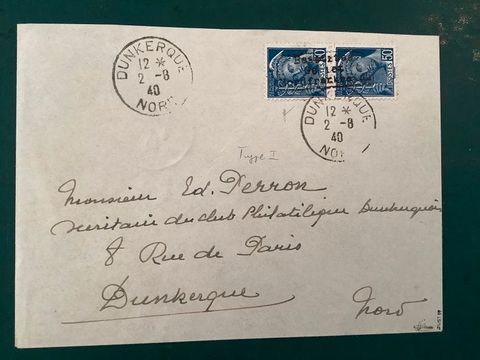 DUNKERQUE
12 *
2 -8
40
NORD
50
50
Besetztes
Gebiet
Nordfrankreich
DUNKERQUE
12 *
2 -8
40
NORD
Type I
Monsieur Ed. Perron
Secrétaire du club Philatélique Dunkerquois
8 Rue de Paris
Dunkerque
Nord